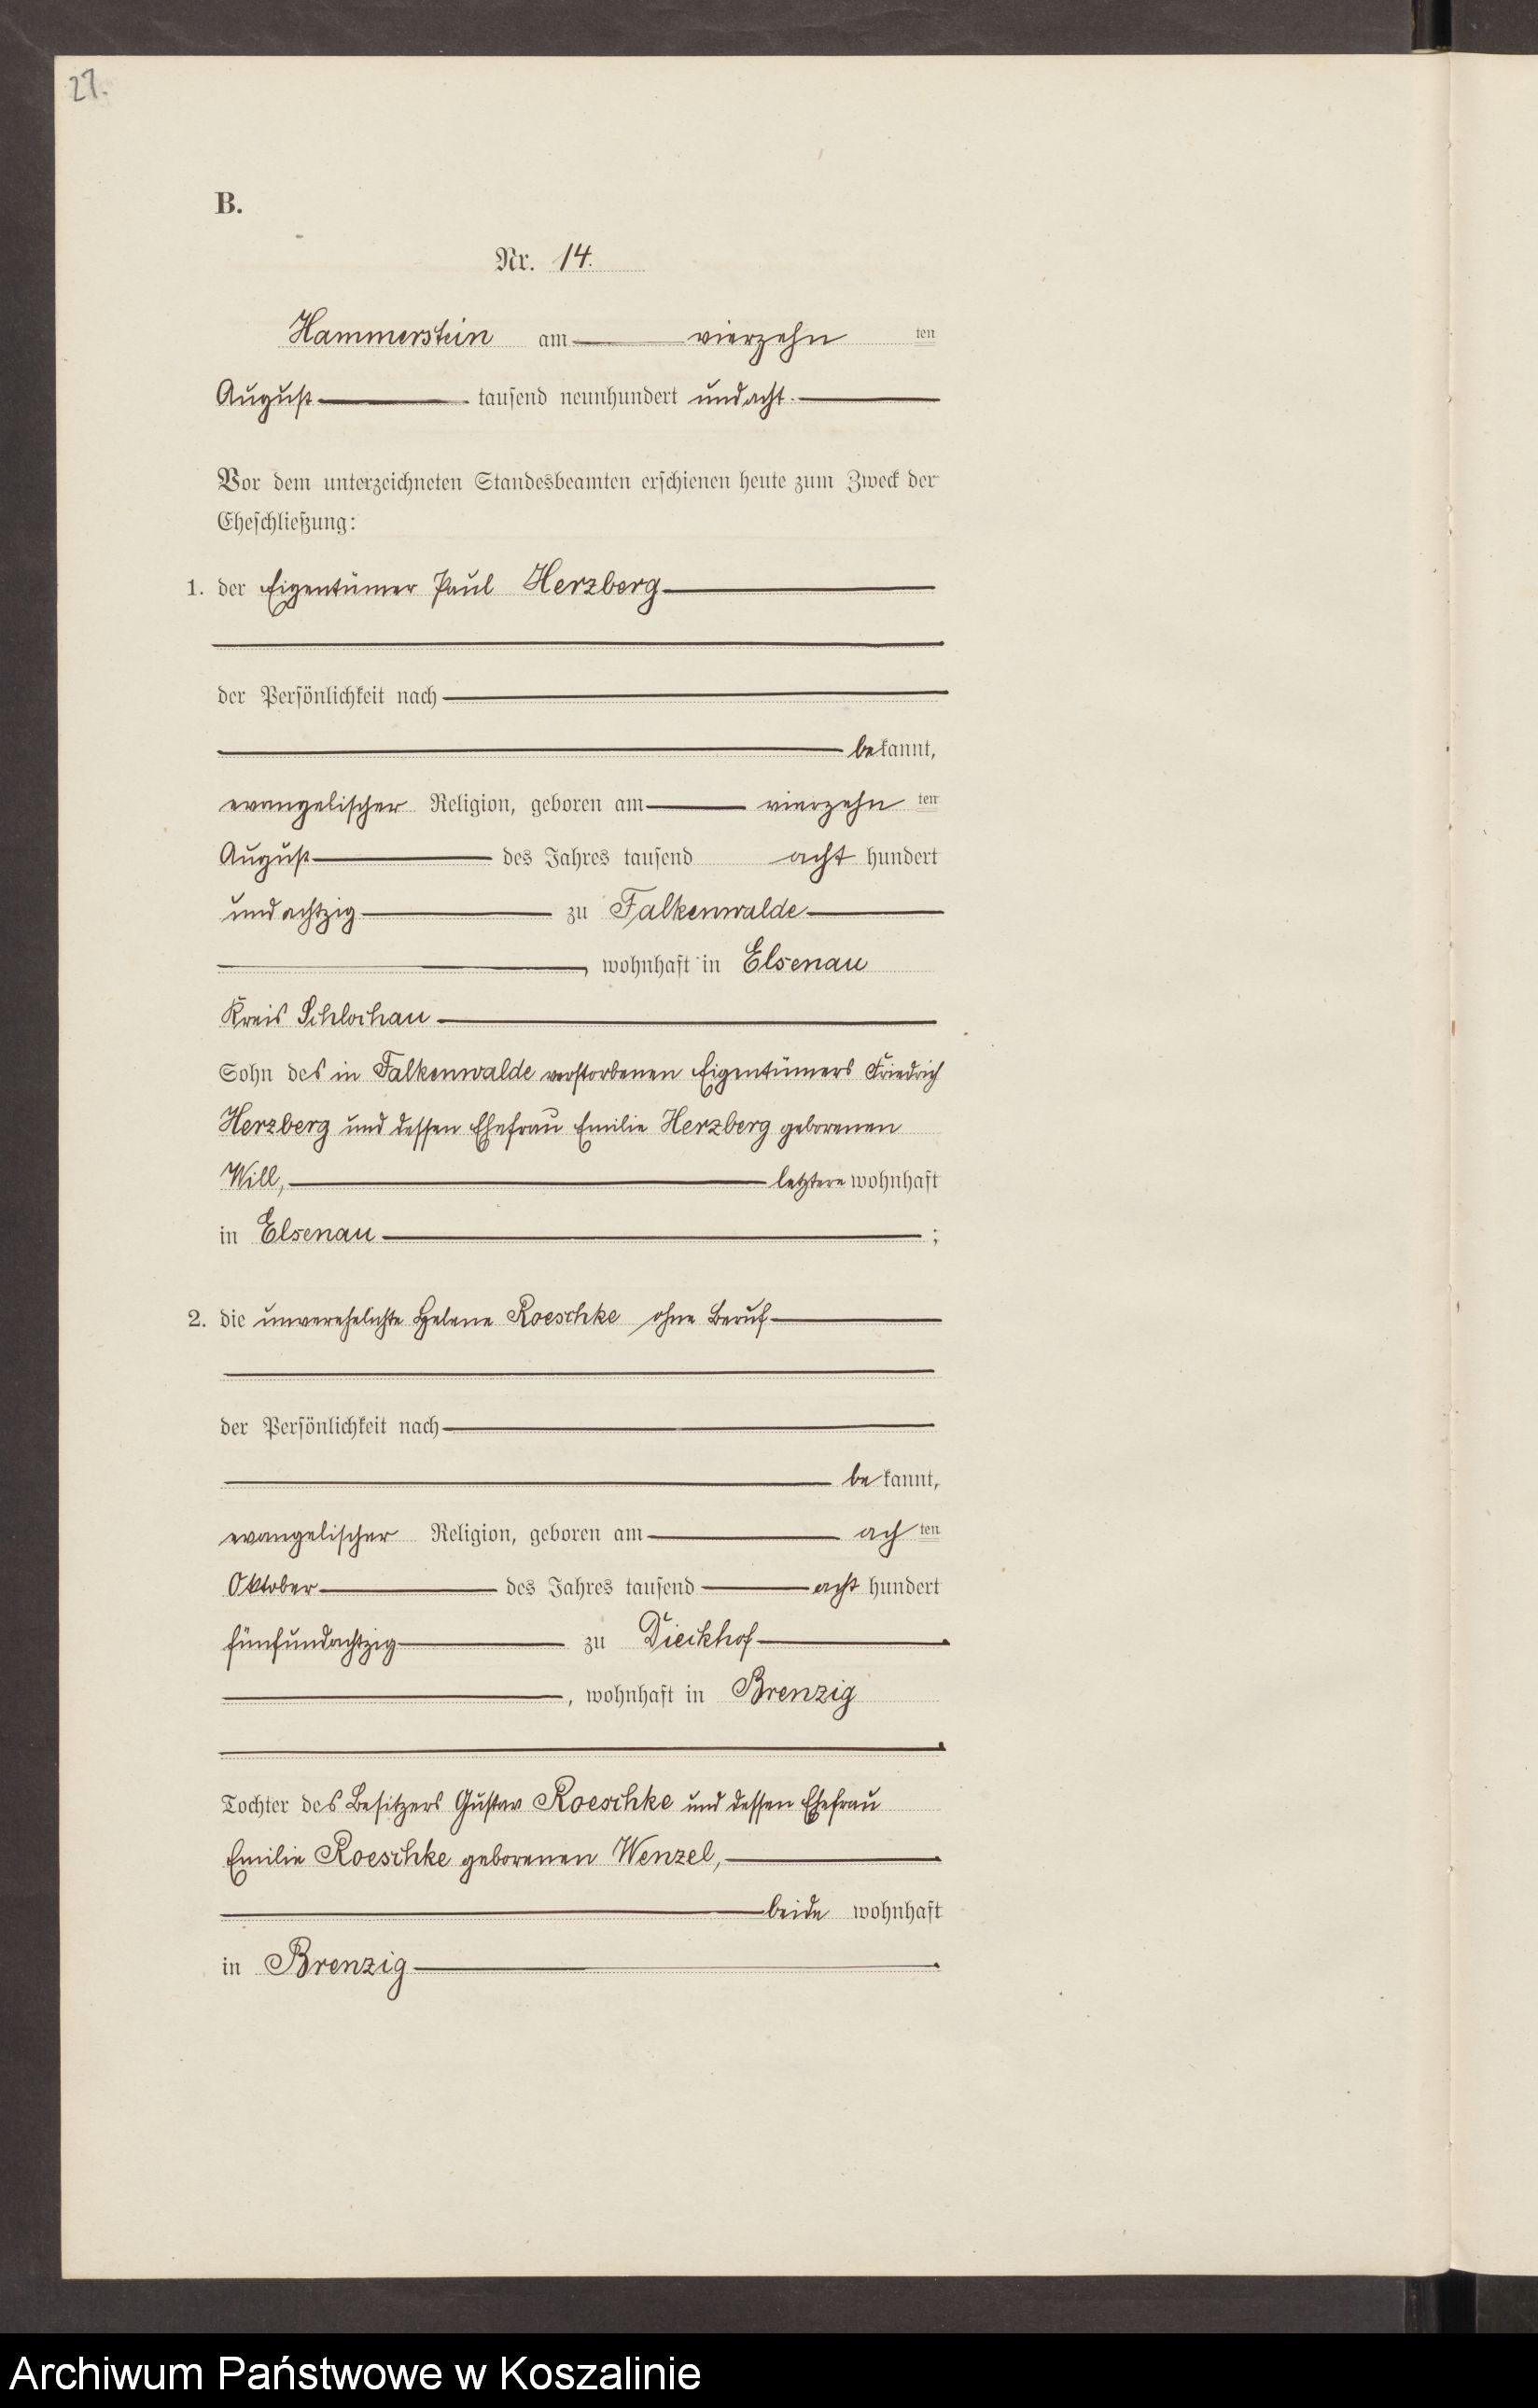 27.
B.
Nr. 14.
Hammerstein am vierzehn ten
August tausend neunhundert und acht.
Vor dem unterzeichneten Standesbeamten erschienen heute zum Zweck der
Eheschließung:
1. der Eigentümer Paul Herzberg
der Persönlichkeit nach
bekannt,
evangelischer Religion, geboren am vierzehn ten
August des Jahres tausend acht hundert
und achtzig zu Falkenwalde
, wohnhaft in Elsenau
Kreis Schlochau
Sohn des in Falkenwalde verstorbenen Eigentümers Friedrich
Herzberg und dessen Ehefrau Emilie Herzberg geborenen
Will, letztere wohnhaft
in Elsenau ;
2. die unverehelichte Helene Roeschke ohne Beruf
der Persönlichkeit nach
bekannt,
evangelischer Religion, geboren am ach ten
Oktober des Jahres tausend acht hundert
fünfundachtzig zu Dieckhof
, wohnhaft in Brenzig
Tochter des Besitzers Gustav Roeschke und dessen Ehefrau
Emilie Roeschke geborenen Wenzel,
beide wohnhaft
in Brenzig
Archiwum Państwowe w Koszalinie